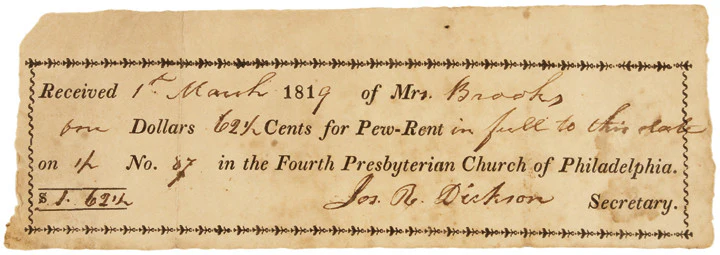 Received 1st March 1819 of Mrs. Brooks
one Dollars 62½ Cents for Pew-Rent in full to this date
on ½ No. 87 in the Fourth Presbyterian Church of Philadelphia.
$ 1. 62½ Jos. R. Dickson Secretary.